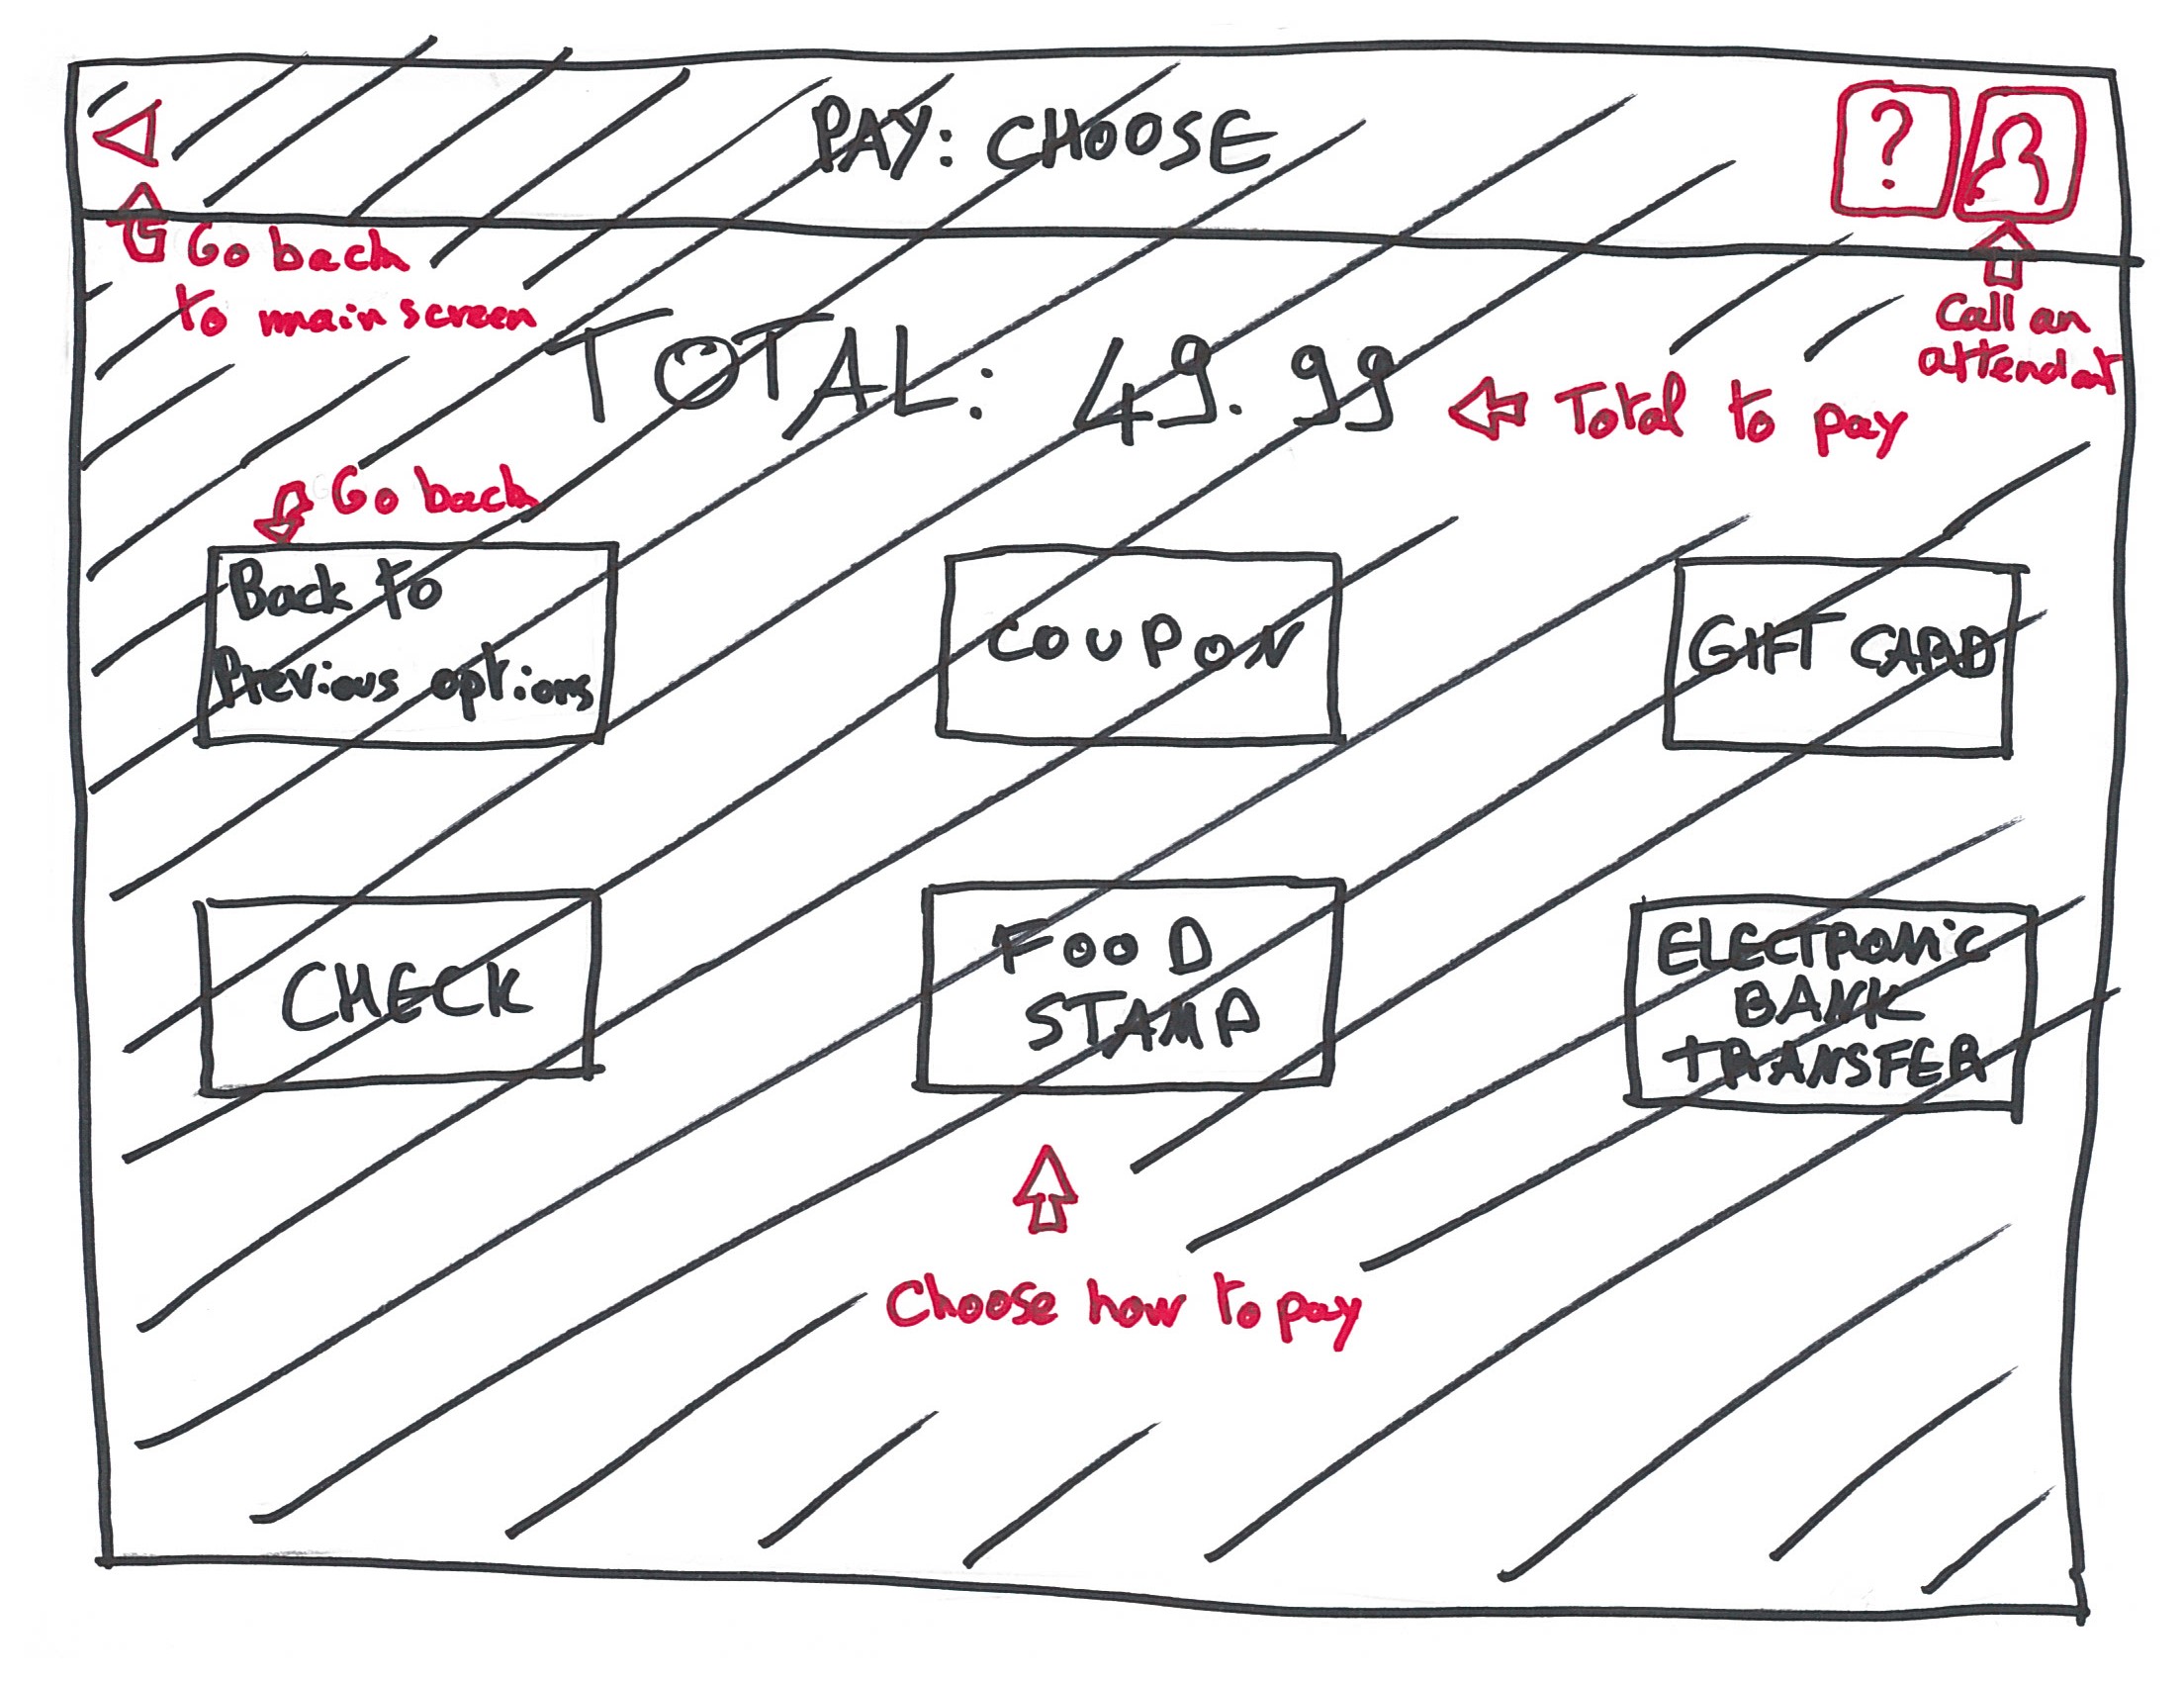 PAY: CHOOSE
?
Go back
to main screen
Call an
attendant
TOTAL: 49.99
Total to pay
Go back
Back to
Previous options
COUPON
GIFT CARD
CHECK
FOOD
STAMP
ELECTRONiC
BANK
TRANSFER
Choose how to pay